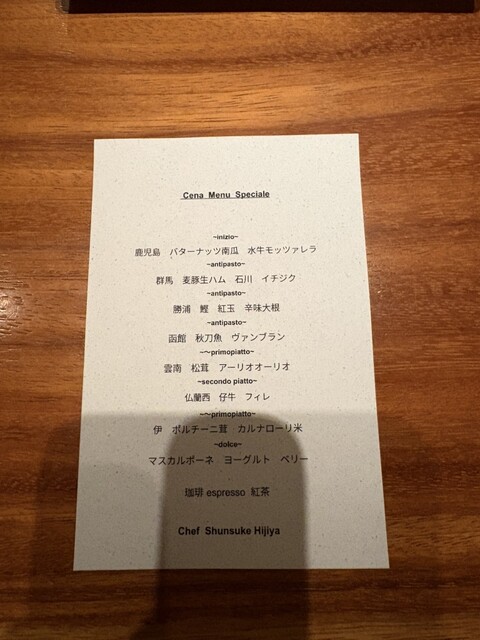 Cena Menu Speciale
~inizio~
鹿児島 バターナッツ南瓜 水牛モッツァレラ
~antipasto~
群馬 麦豚生ハム 石川 イチジク
~antipasto~
勝浦 鰹 紅玉 辛味大根
~antipasto~
函館 秋刀魚 ヴァンブラン
~~primopiatto~
雲南 松茸 アーリオオーリオ
~secondo piatto~
仏蘭西 仔牛 フィレ
~~primopiatto~
伊 ポルチーニ茸 カルナローリ米
~dolce~
マスカルポーネ ヨーグルト ベリー
珈琲 espresso 紅茶
Chef Shunsuke Hijiya